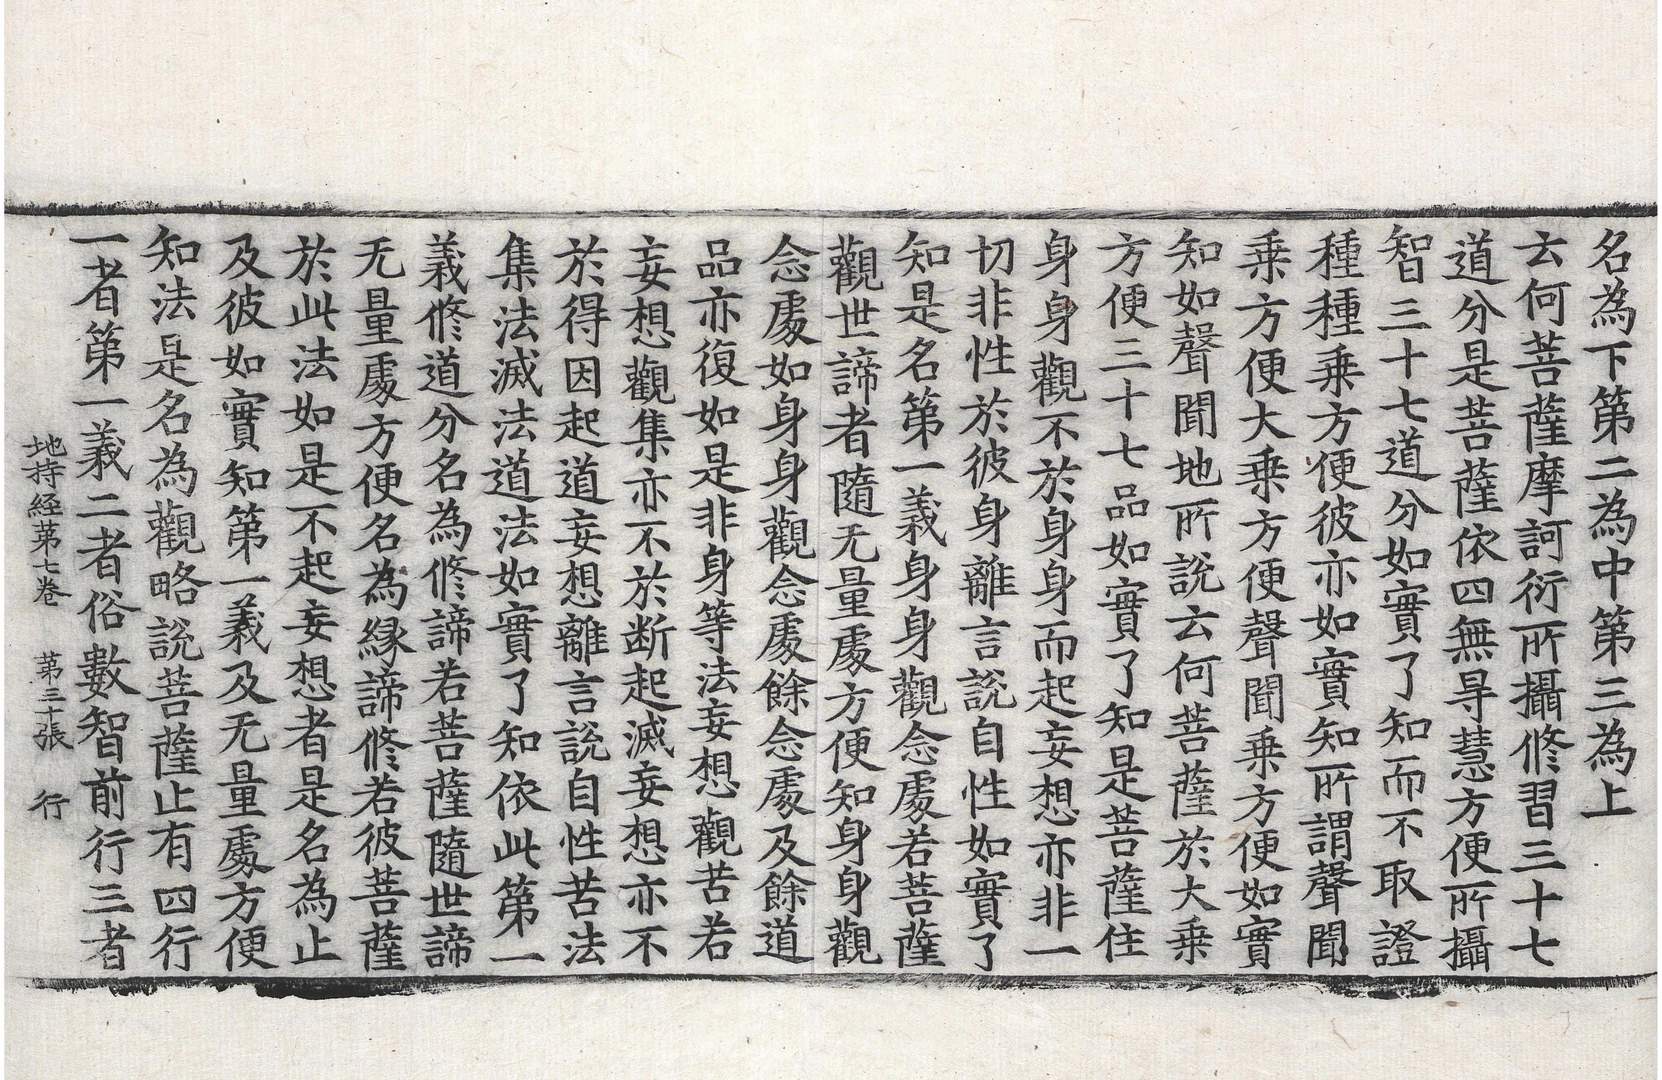 名為下第二為中第三為上
云何菩薩摩訶衍所攝修習三十七
道分是菩薩依四無㝵慧方便所攝
智三十七道分如實了知而不取證
種種乗方便彼亦如實知所謂聲聞
乗方便大乗方便聲聞乗方便如實
知如聲聞地所說云何菩薩於大乗
方便三十七品如實了知是菩薩住
身身觀不於身身而起妄想亦非一
切非性於彼身離言說自性如實了
知是名第一義身身觀念處若菩薩
觀世諦者隨无量處方便知身身觀
念處如身身觀念處餘念處及餘道
品亦復如是非身等法妄想觀苦若
妄想觀集亦不於断起滅妄想亦不
於得因起道妄想離言說自性苦法
集法滅法道法如實了知依此第一
義修道分名為修諦若菩薩隨世諦
无量處方便名為縁諦修若彼菩薩
於此法如是不起妄想者是名為止
及彼如實知第一義及无量處方便
知法是名為觀略說菩薩止有四行
一者第一義二者俗數智前行三者
地持経苐七卷　苐三十張　行